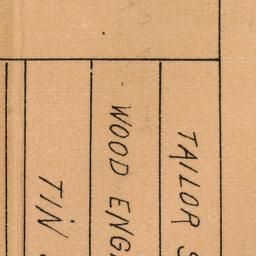 TAILOR S
WOOD ENG
TIN